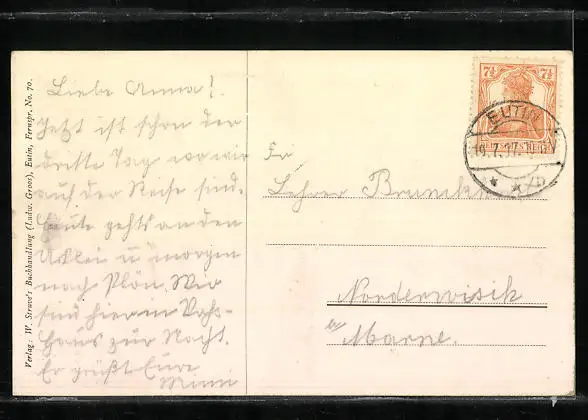 Liebe Anna!
Jetzt ist schon der
dritte Tag wo wir
auf der Reise sind.
Heute gehts an den
Uklei u morgen
nach Plön. Wir
sind hier im
haus zur Nacht.
Es grüßt Eure
Mimi
Verlag: W. Struve's Buchhandlung (Ludw. Groos), Eutin, Fernspr. No. 70.
7½ 7½
DEUTSCHES REICH
EUTIN
7.17.
Lehrer
Norderwisch
b/
Marne.